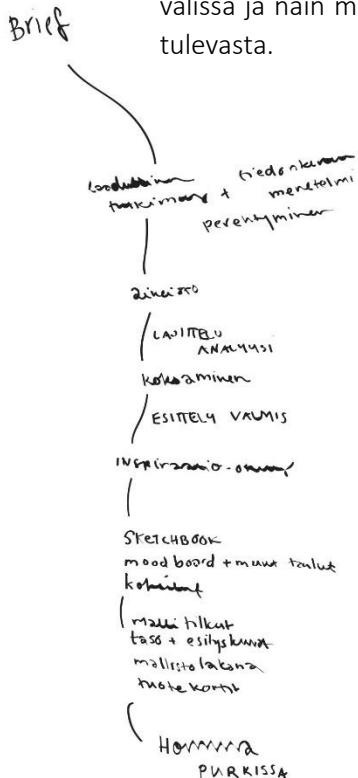 välissä ja näin m
tulevasta.
Brief
tiedonkeruu
tutkimus + menetelmi
perehtyminen
aineisto
LAJITTELU
ANALYYSI
kokoaminen
ESITTELY VALMIS
INSpiraatio-
SKETCHBOOK
mood board + muut taulut
mallitilkut
taso + esityskuvat
mallistolakana
tuotekortit
Homma
PURKISSA